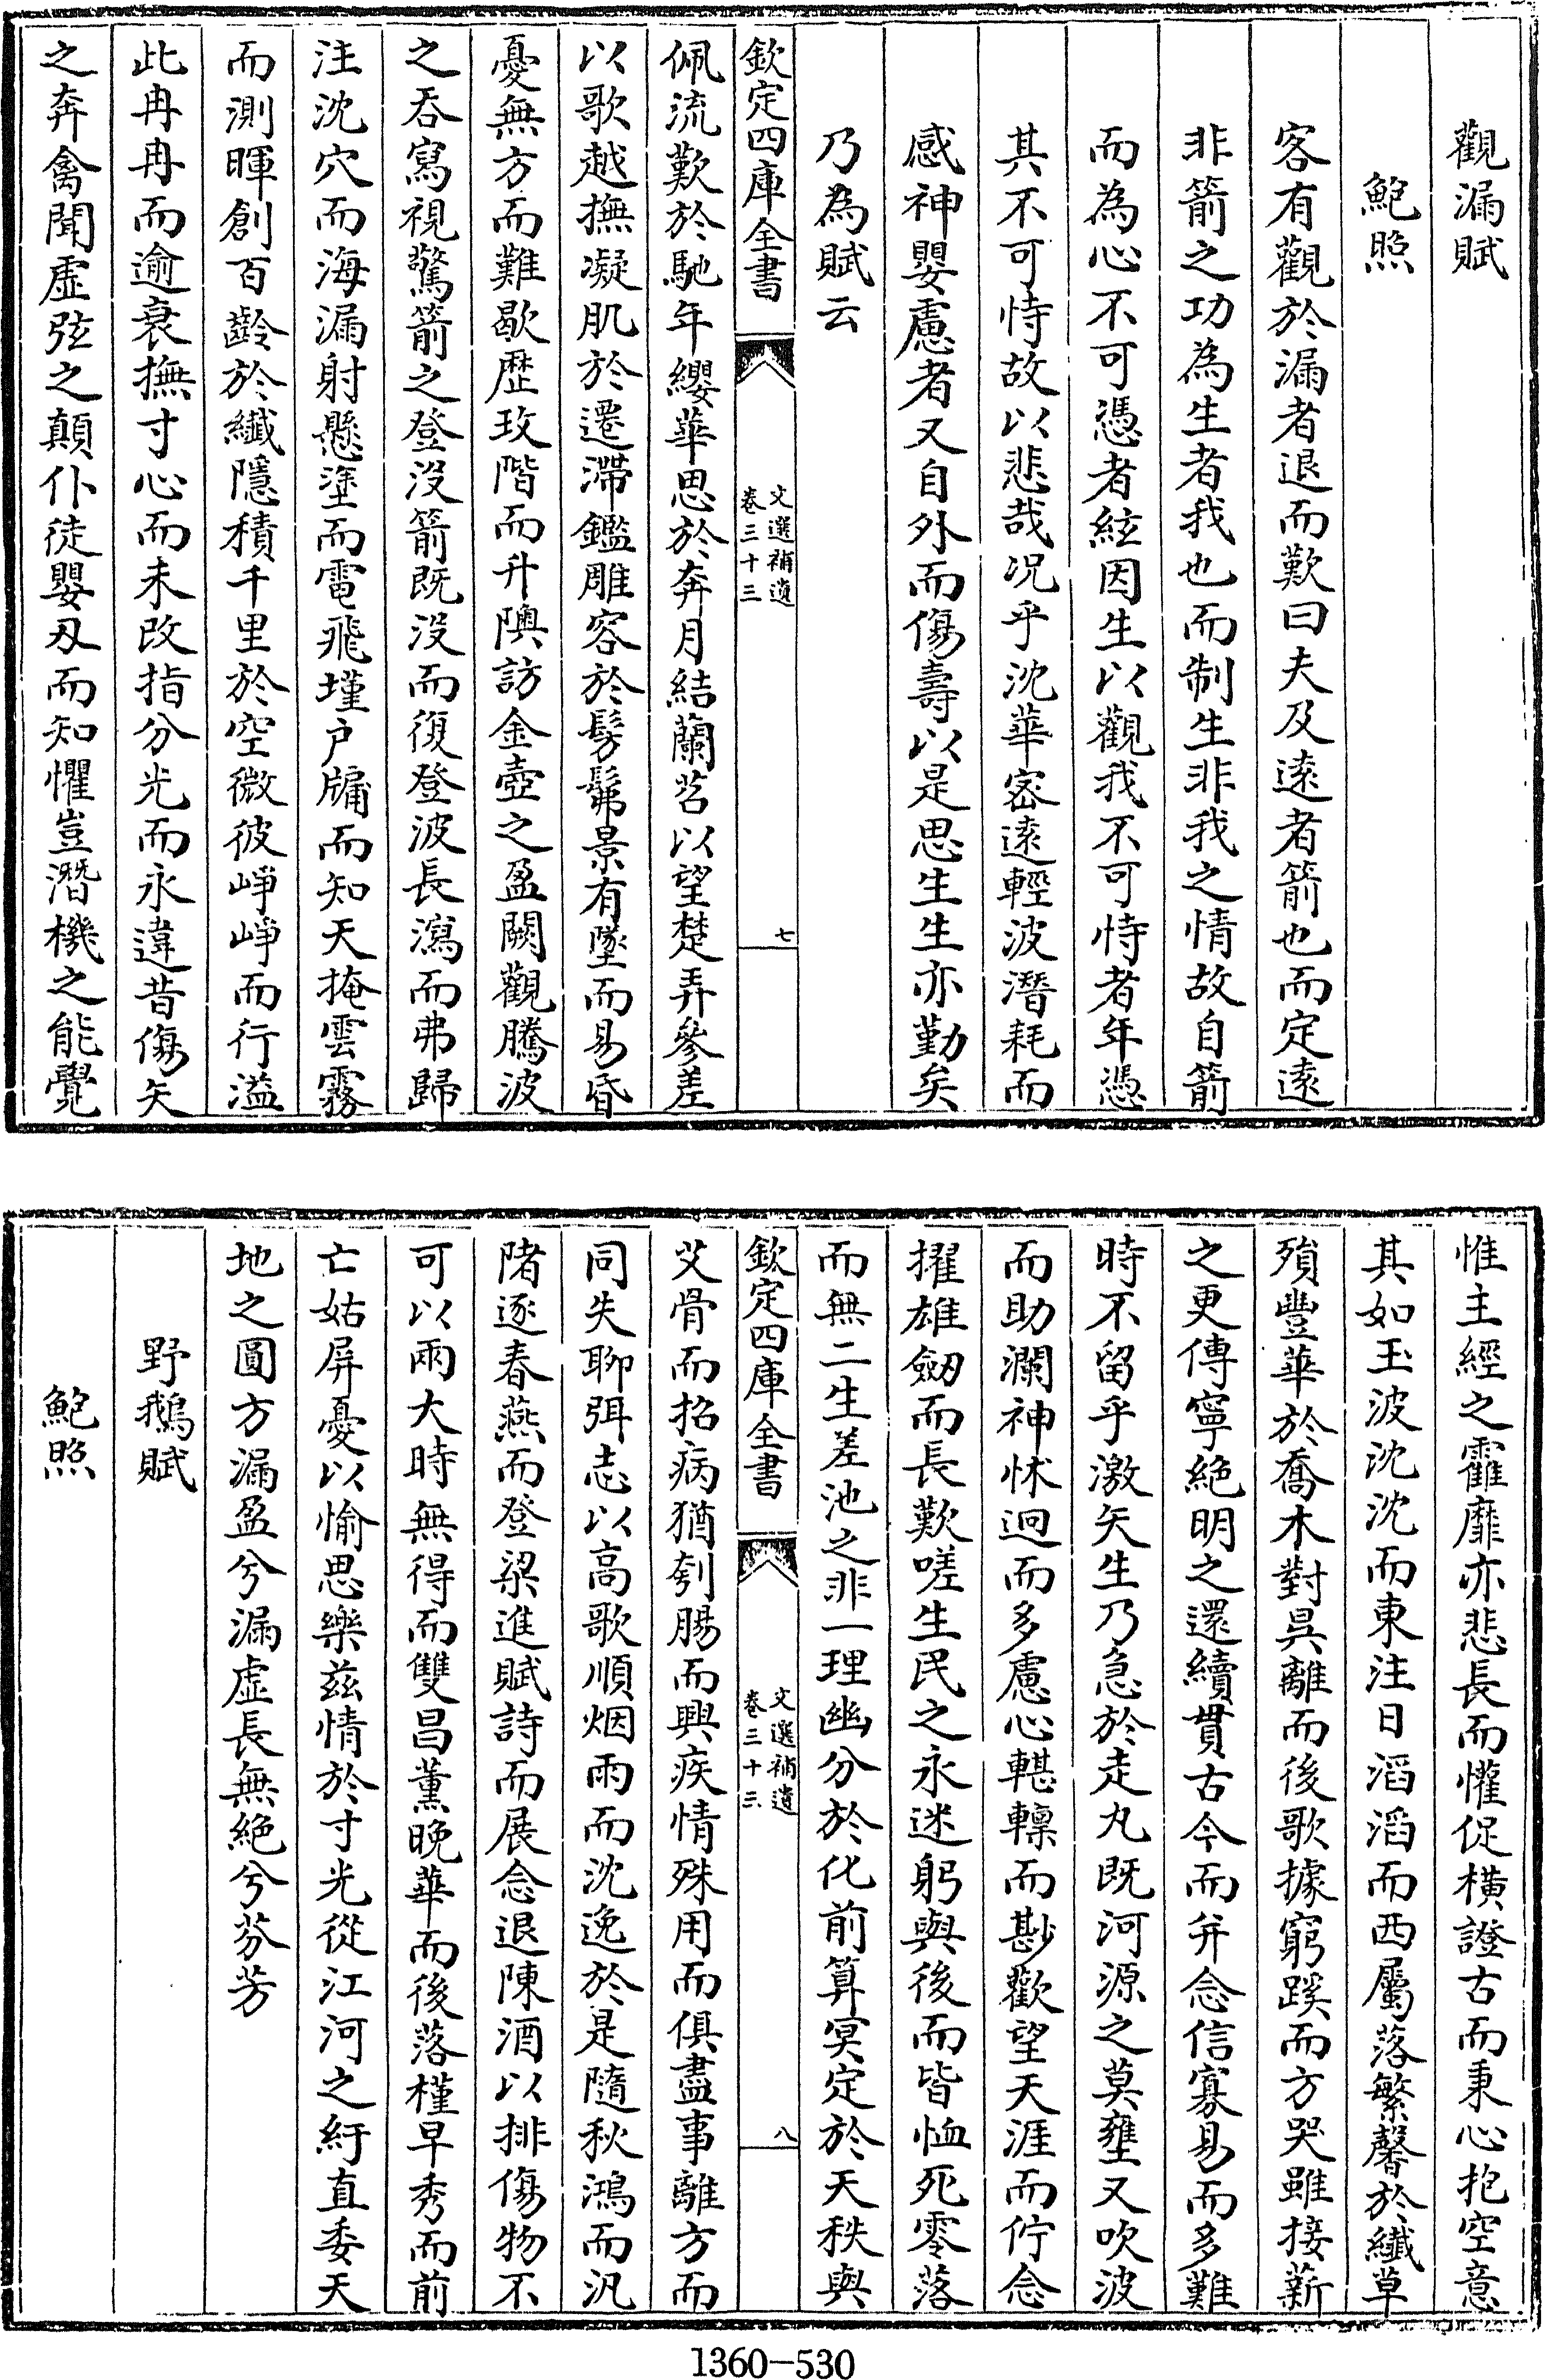 觀漏賦
鮑照
客有觀於漏者退而歎曰夫及遠者箭也而定遠
非箭之功為生者我也而制生非我之情故自箭
而為心不可憑者絃因生以觀我不可恃者年憑
其不可恃故以悲哉況乎沈華密遠輕波潛耗而
感神嬰慮者又自外而傷壽以是思生生亦勤矣
乃為賦云
欽定四庫全書
文選補遺
卷三十三
七
佩流歎於馳年纓華思於奔月結蘭苕以望楚弄參差
以歌越撫凝肌於遷滯鑑雕容於髣髴景有墜而易昏
憂無方而難歇歷玫階而升隩訪金壺之盈闕觀騰波
之吞寫視驚箭之登沒箭既沒而復登波長瀉而弗歸
注沈穴而海漏射懸塗而電飛墐戶牖而知天掩雲霧
而測暉創百齡於纖隱積千里於空微彼崢崢而行溢
此冉冉而逾衰撫寸心而未改指分光而永違昔傷矢
之奔禽聞虛弦之顛仆徒嬰刃而知懼豈潛機之能覺
惟主經之靃靡亦悲長而懽促橫證古而秉心抱空意
其如玉波沈沈而東注日滔滔而西屬落繁馨於纖草
殞豐華於喬木對吳離而後歌據窮蹊而方哭雖接薪
之更傳寧絕明之還續貫古今而并念信寡易而多難
時不留乎激矢生乃急於走丸既河源之莫壅又吹波
而助瀾神怵迥而多慮心轗轈而尠歡望天涯而佇念
擢雄劒而長歎嗟生民之永迷躬與後而皆恤死零落
而無二生差池之非一理幽分於化前算冥定於天秩與
欽定四庫全書
文選補遺
卷三十三
八
艾骨而招病猶刳腸而興疾情殊用而俱盡事離方而
同失聊弭志以高歌順烟雨而沈逸於是隨秋鴻而汎
陼逐春燕而登梁進賦詩而展念退陳酒以排傷物不
可以兩大時無得而雙昌薰晚華而後落槿早秀而前
亡姑屏憂以愉思樂茲情於寸光從江河之紆直委天
地之圓方漏盈兮漏虛長無絕兮芬芳
野鵝賦
鮑照
1360-530